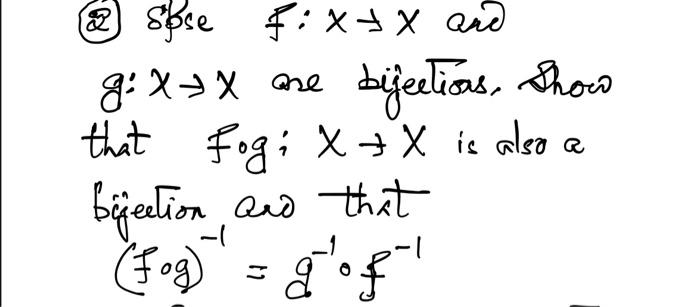 ② Spse f: X → X and
g: X → X are bijections. Show
that fog: X → X is also a
bijection and that
(fog)⁻¹ = g⁻¹∘f⁻¹